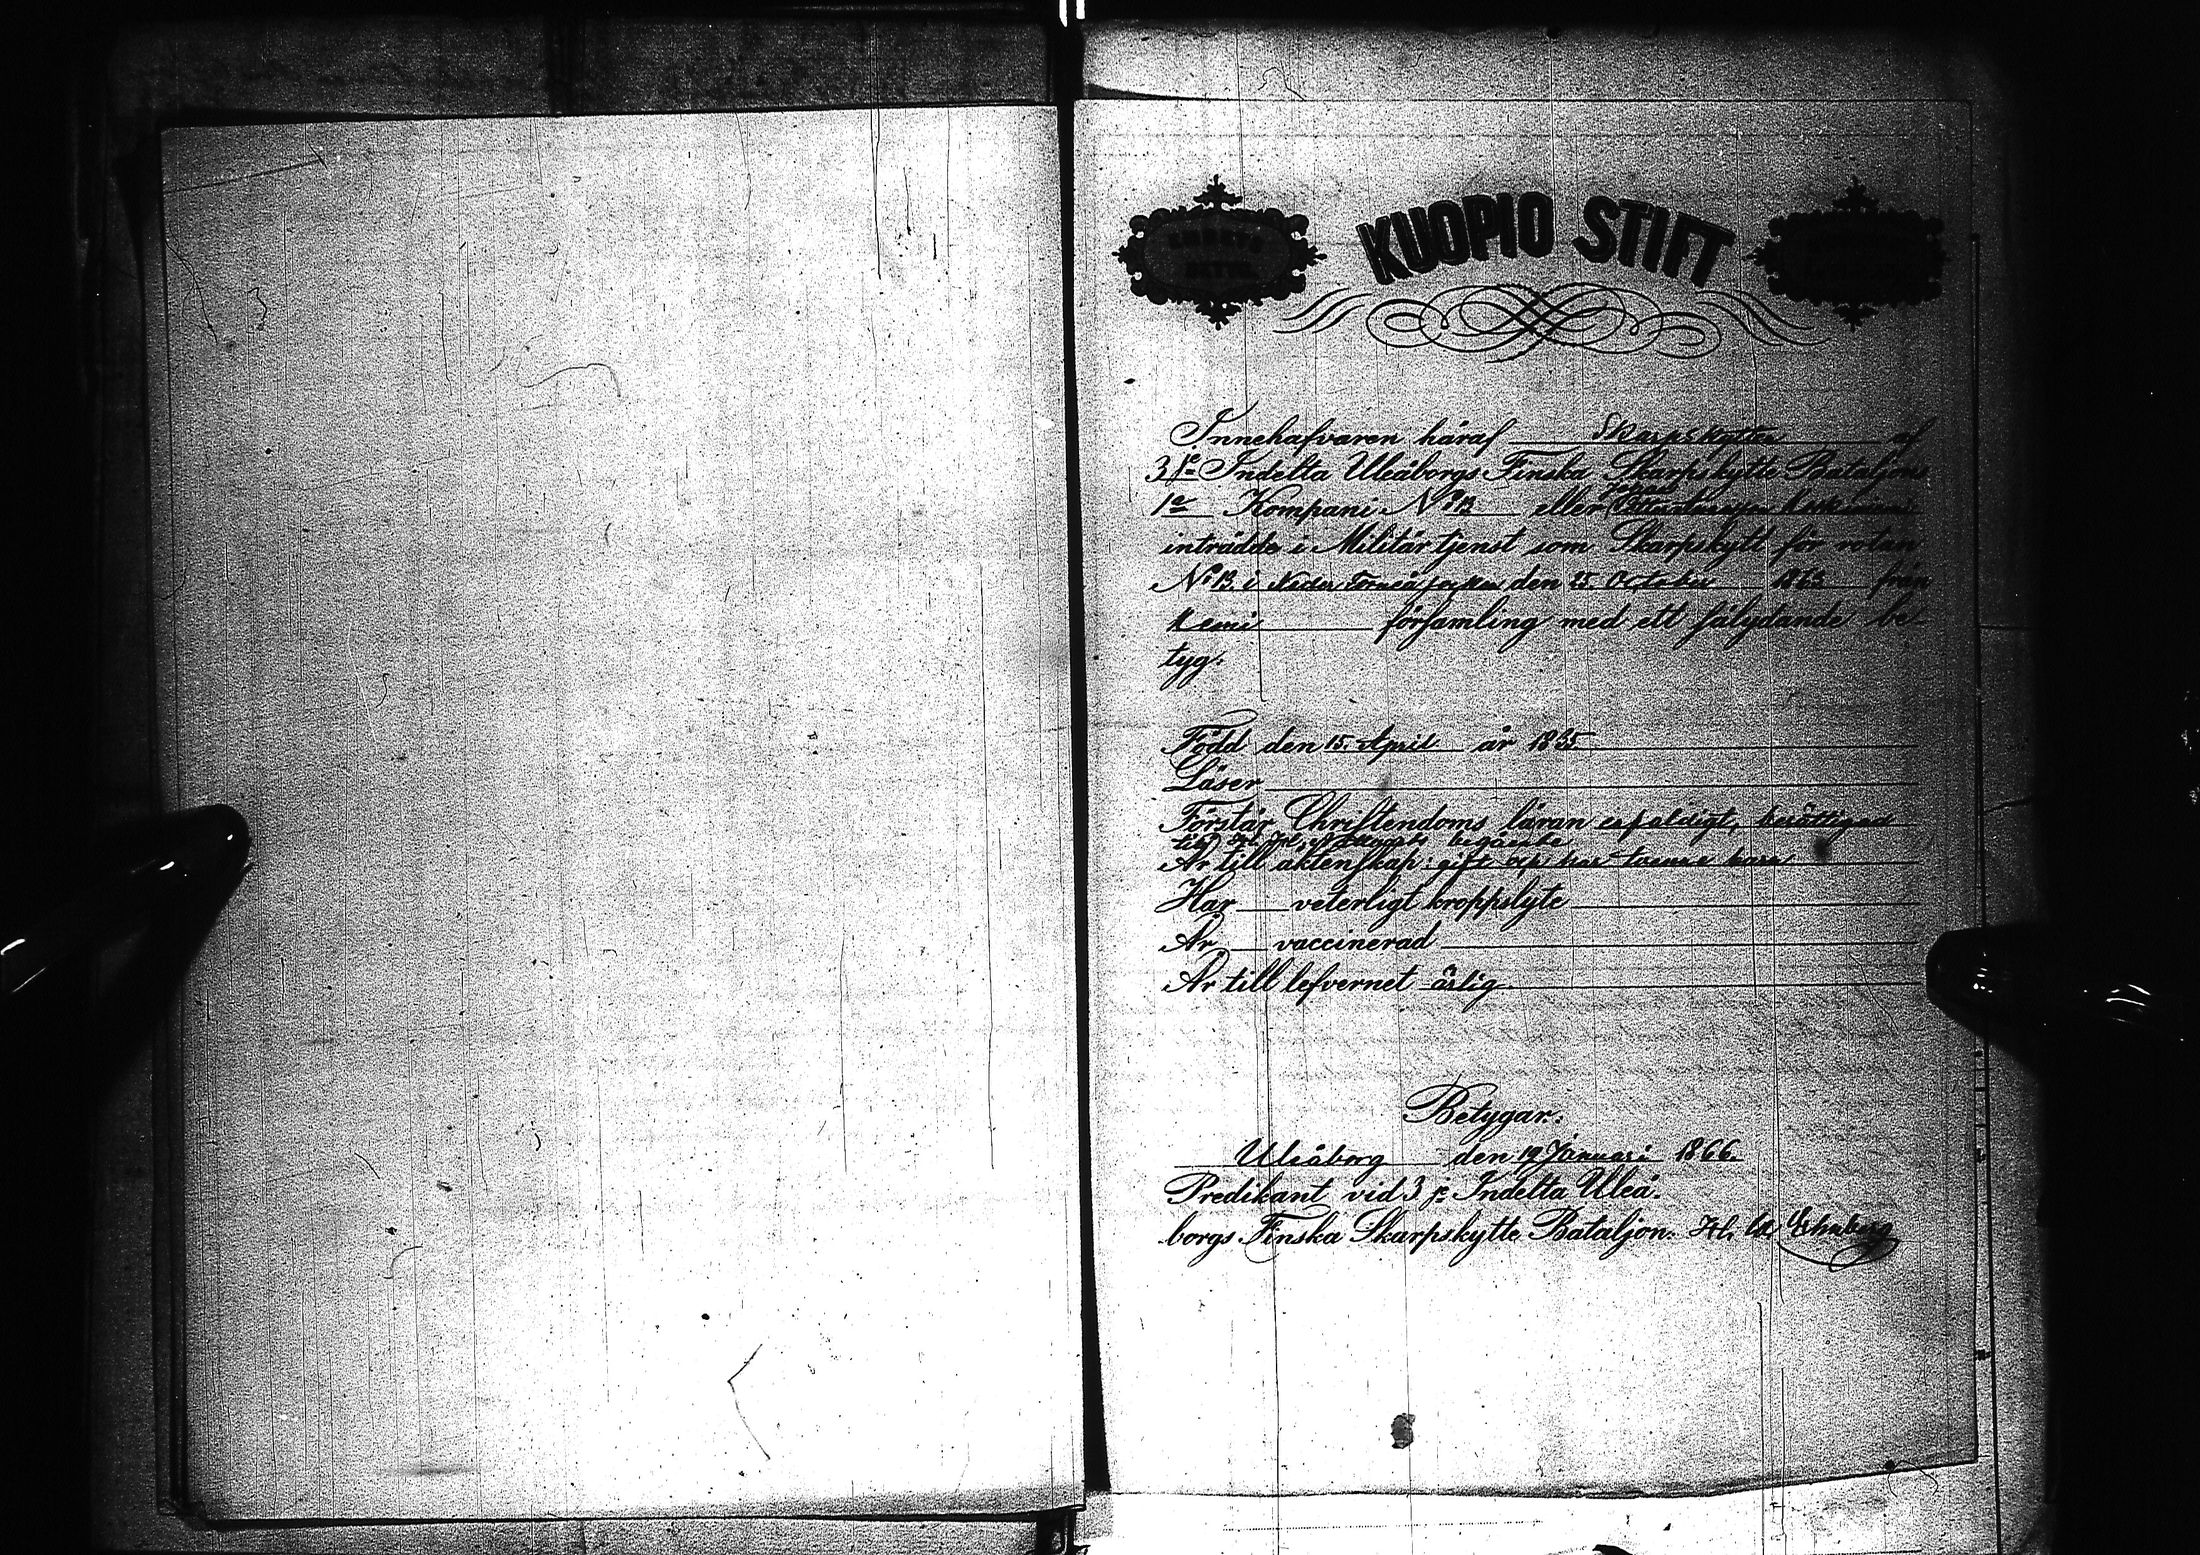 KUOPIO STIFT
Innehafvaren häraf Skarpskytten af
3je Indelta Uleåborgs Finska Skarpskytte Bataljons
1e Kompani No 13 eller Johan
inträdde i Militär tjenst som Skarpskytt för rotan
No 13 i Neder Torneå socken den 25. October 1863 från
Kemi församling med ett sålydande be-
tyg:
Född den 15. April år 1835
Läser
Förstår Christendoms läran enfaldigt, berättigad
till H. H. Nattvards begående
Är till äktenskap: gift och har tvenne barn
Har veterligt kroppslyte
Är vaccinerad
Är till lefvernet ärlig
Betygar:
Uleåborg den 19 Januari 1866.
Predikant vid 3je Indelta Uleå-
borgs Finska Skarpskytte Bataljon.